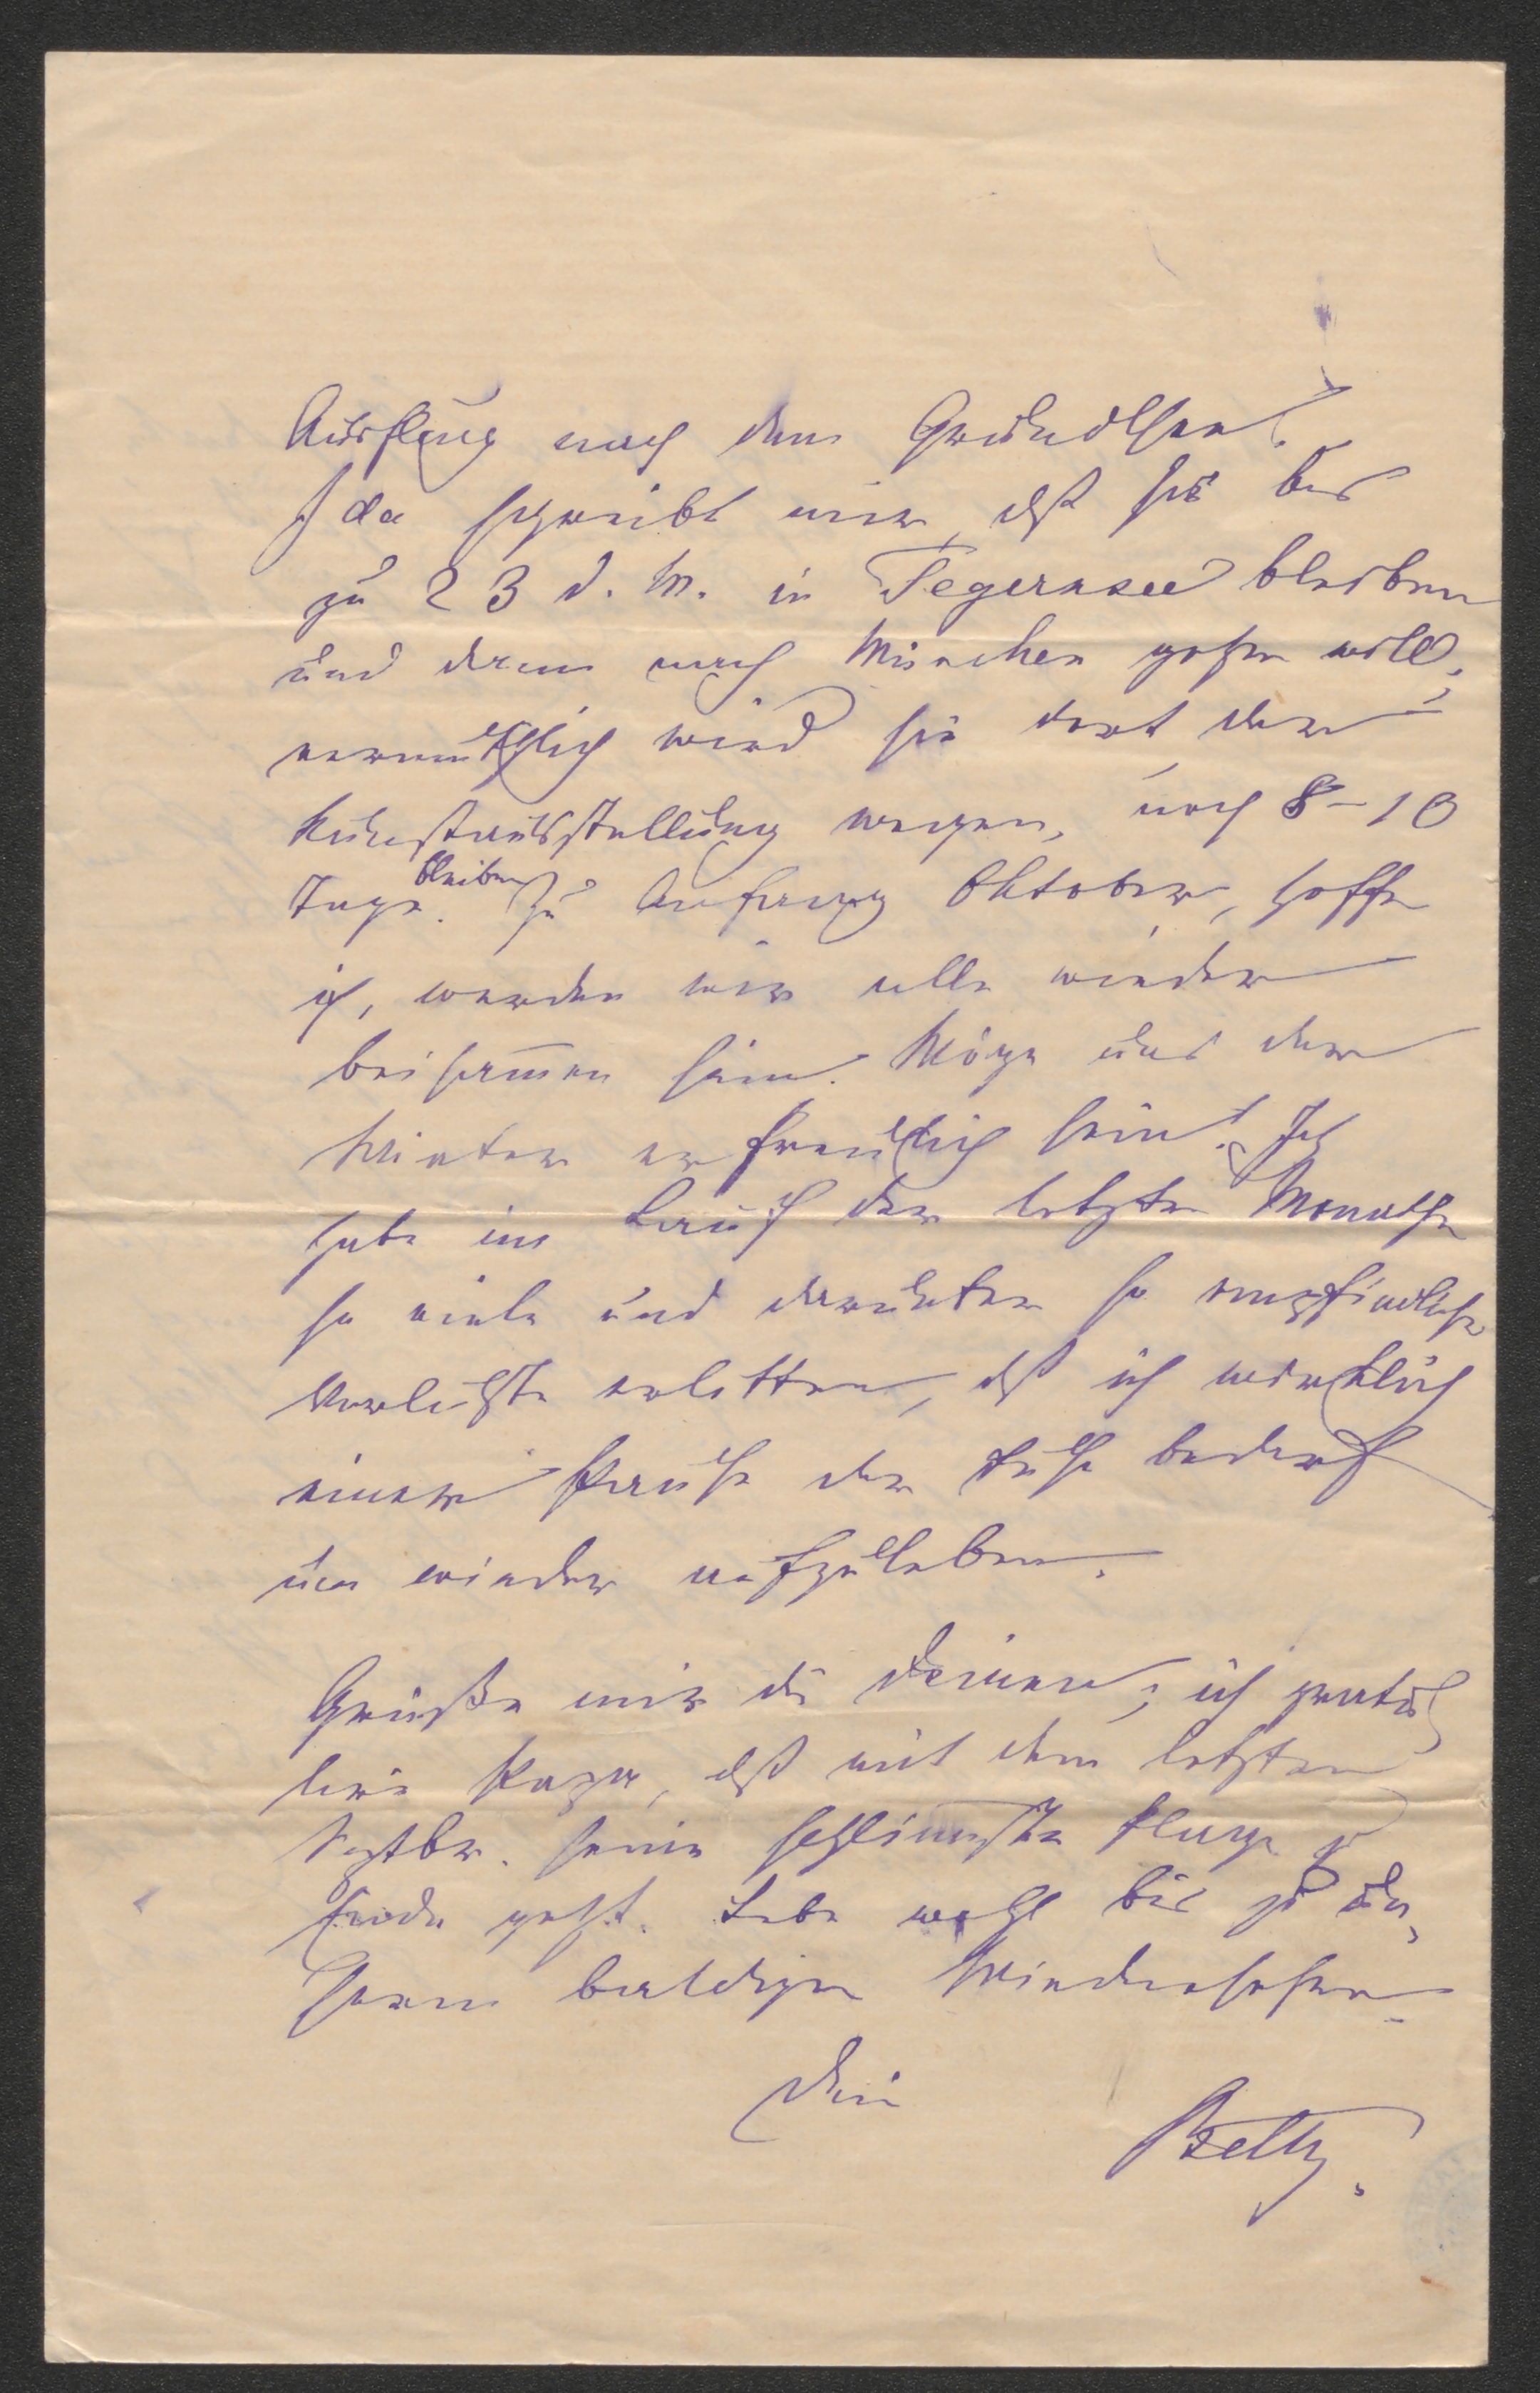 Ausflug nach dem Grundlsee!
Ida schreibt mir, dß sie bis
zu 23 d. M. in Tegernsee bleiben
und dann nach München gehen will,
vermuthlich wird sie dort der
Kunstausstellung wegen, noch 8–10
Tage bleiben. Zu Anfang Oktober, hoffe
ich, werden wir alle wieder
beisam̅en sein. Möge uns der
Winter erfreulich sein! Ich
habe im Lauf der letzten Monathe
so viele und darunter so empfindliche
Verluste erlitten, dß ich wirklich
einer Pause der Ruhe bedarf
um wieder aufzuleben.
Grüße mir die Deinen; ich gratu
lire, dß mit dem letzten
Septbr. seine schlimmste Plage zu
Ende geht. Lebe wohl bis zu un,
serem baldigen Wiedersehen.
Dein
Betty.